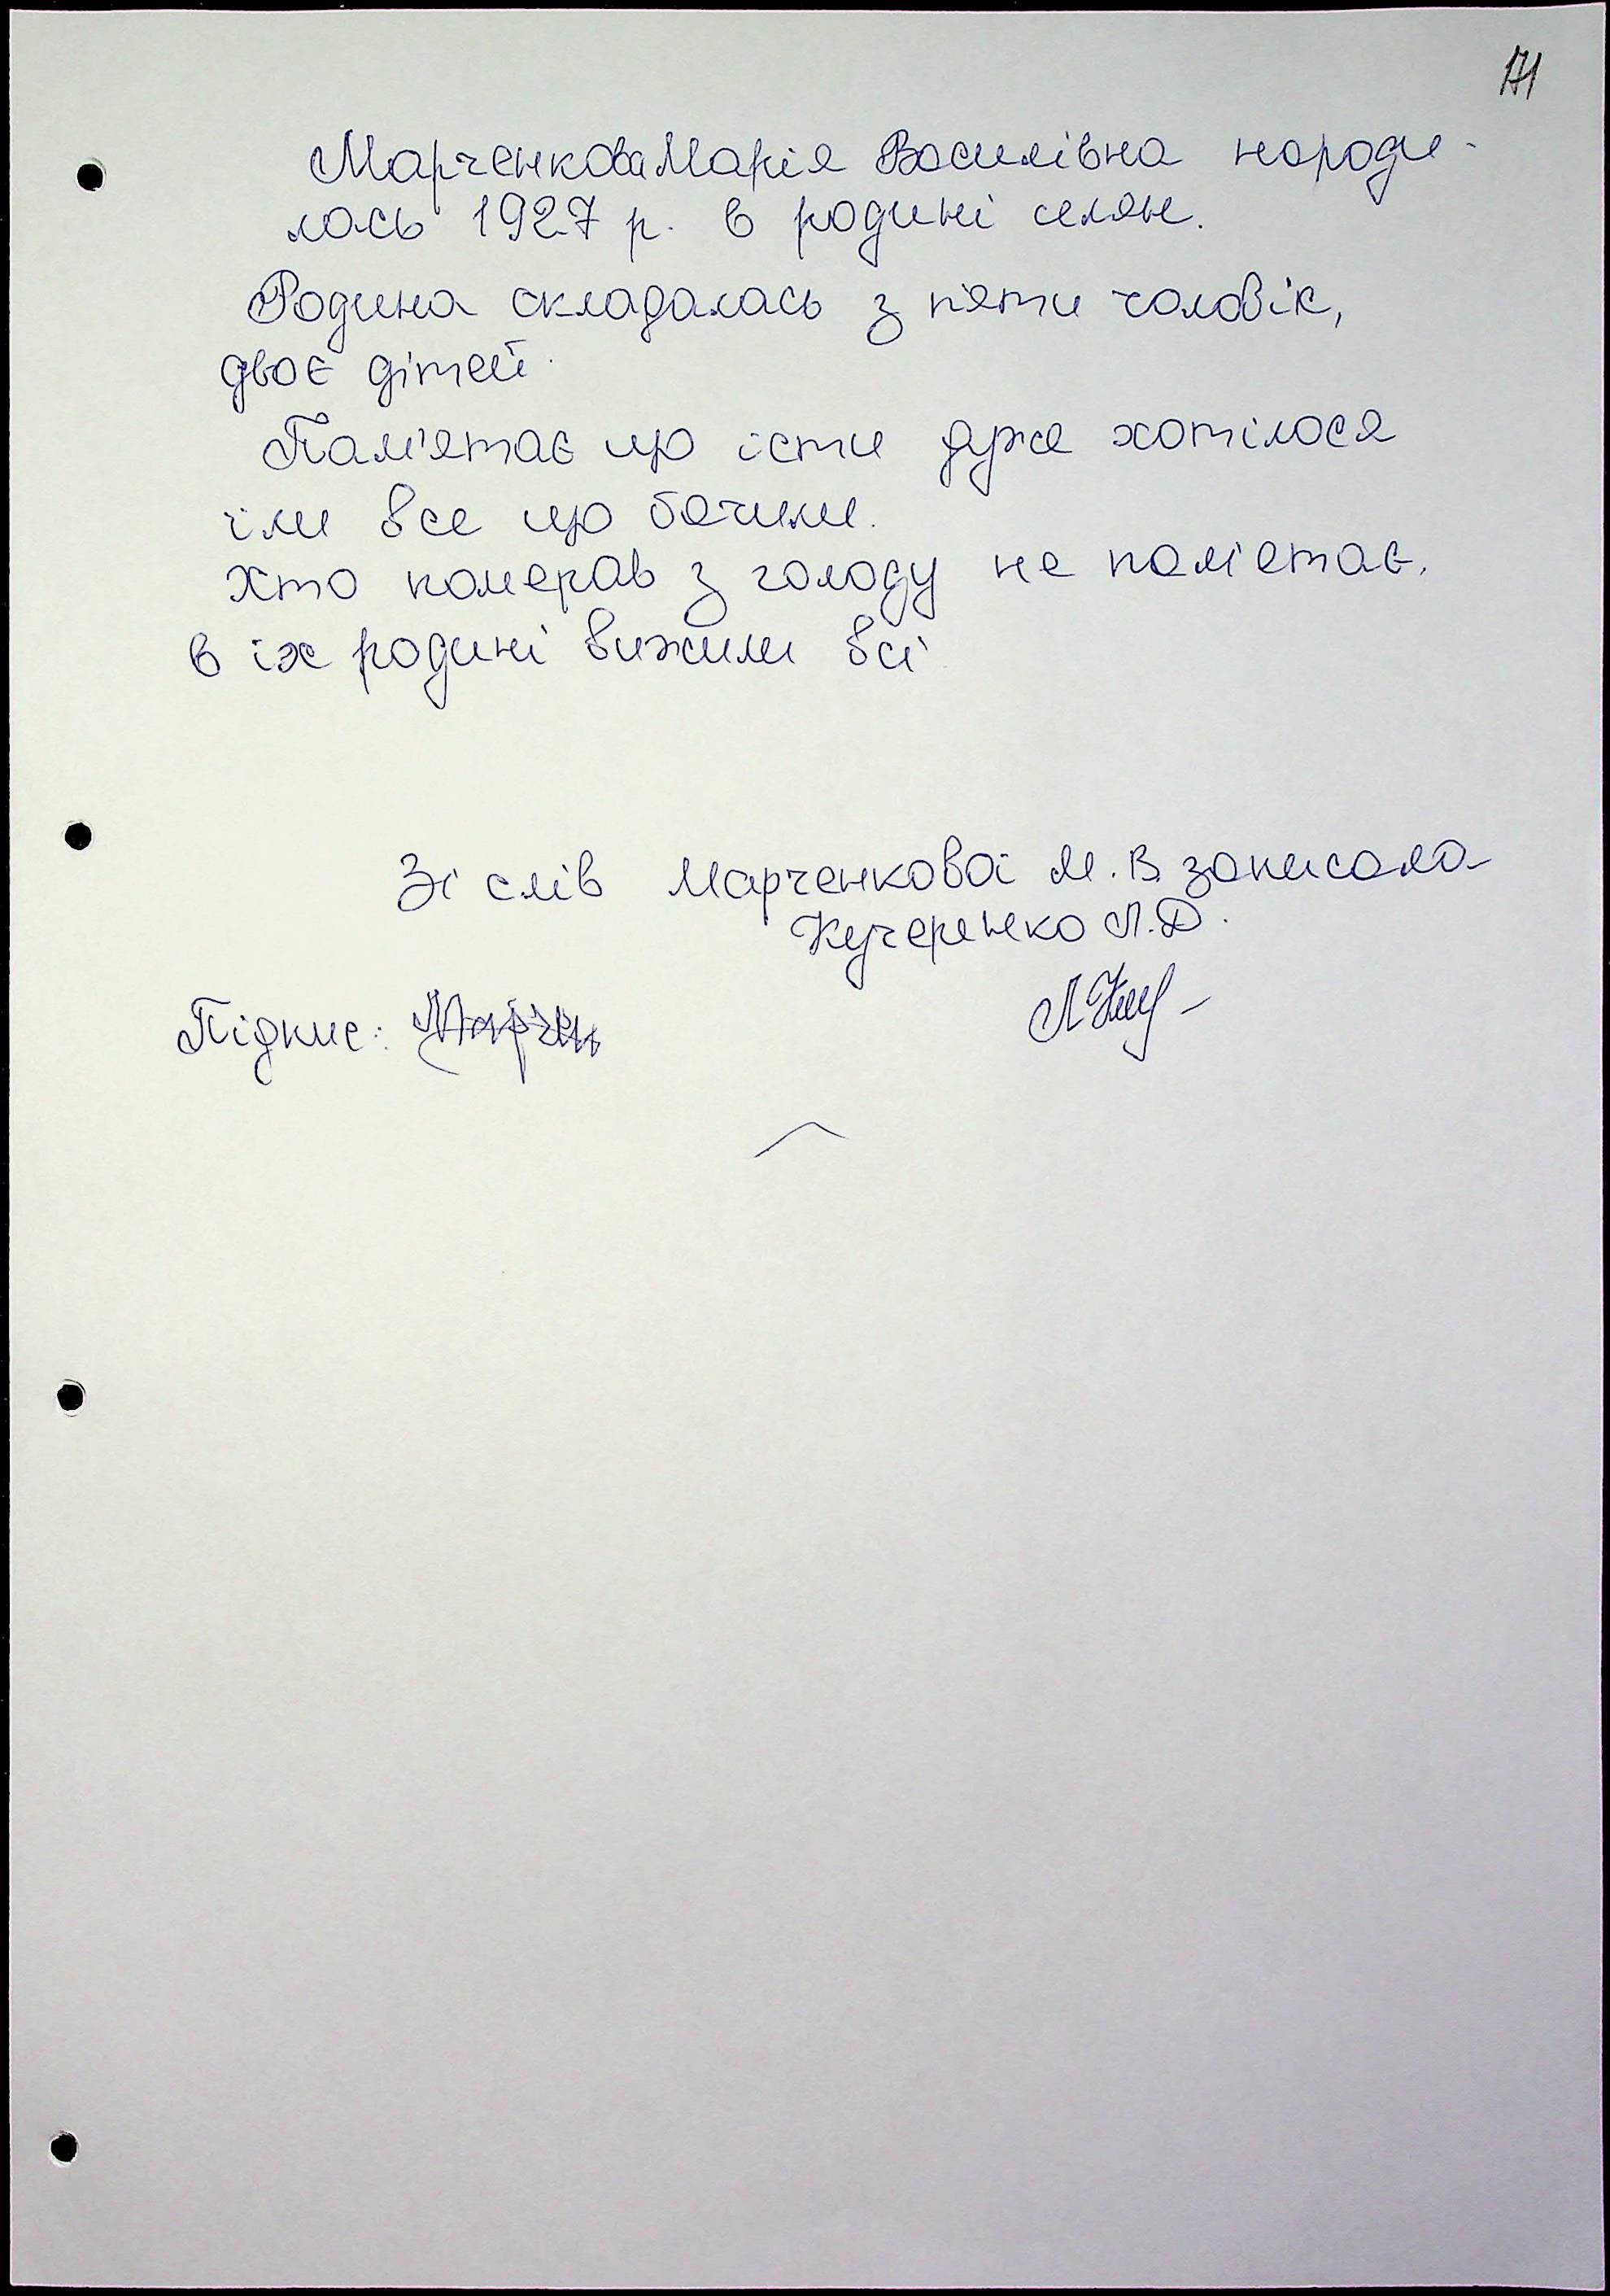 171
Марченкова Марія Василівна народи-
лась 1927 р. в родині селян.
Родина складалась з п'яти чоловік,
двоє дітей.
Пам'ятає що їсти дуже хотілося
їли все що бачили.
хто померав з голоду не пам'ятає.
в їх родині вижили всі.
Зі слів Марченкової М.В. записала
Кучеренко Л.Д.
Підпис: Марчен